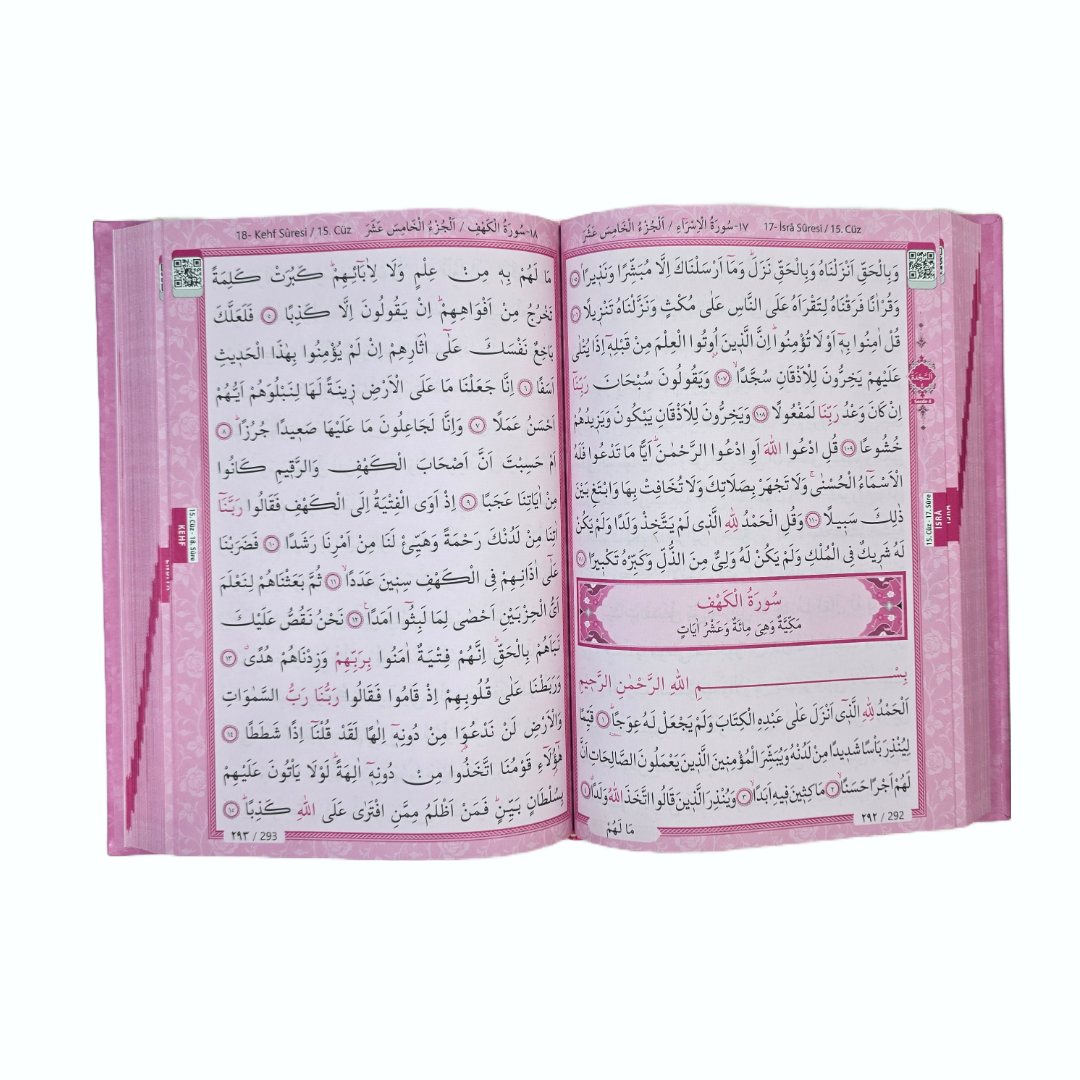 ١٧-سُورَةُ الْاِسْرَاءِ / اَلْجُزْءُ الْخَامِسَ عَشَرَ 17- İsrâ Sûresi / 15. Cüz
وَبِالْحَقِّ اَنْزَلْنَاهُ وَبِالْحَقِّ نَزَلَۜ وَمَٓا اَرْسَلْنَاكَ اِلَّا مُبَشِّرًا وَنَذِيرًاۢ ١٠٥
وَقُرْاٰنًا فَرَقْنَاهُ لِتَقْرَاَهُ عَلَى النَّاسِ عَلٰى مُكْثٍ وَنَزَّلْنَاهُ تَنْزِيلًا ١٠٦
قُلْ اٰمِنُوا بِهٖٓ اَوْ لَا تُؤْمِنُواۜ اِنَّ الَّذٖينَ اُو۫تُوا الْعِلْمَ مِنْ قَبْلِهٖٓ اِذَا يُتْلٰى
عَلَيْهِمْ يَخِرُّونَ لِلْاَذْقَانِ سُجَّدًاۙ ١٠٧ وَيَقُولُونَ سُبْحَانَ رَبِّنَٓا
اِنْ كَانَ وَعْدُ رَبِّنَا لَمَفْعُولًا ١٠٨ وَيَخِرُّونَ لِلْاَذْقَانِ يَبْكُونَ وَيَزٖيدُهُمْ
خُشُوعًا ١٠٩ قُلِ ادْعُوا اللّٰهَ اَوِ ادْعُوا الرَّحْمٰنَۜ اَيًّا مَا تَدْعُوا فَلَهُ
الْاَسْمَٓاءُ الْحُسْنٰىۚ وَلَا تَجْهَرْ بِصَلَاتِكَ وَلَا تُخَافِتْ بِهَا وَابْتَغِ بَيْنَ
ذٰلِكَ سَبٖيلًا ١١٠ وَقُلِ الْحَمْدُ لِلّٰهِ الَّذٖى لَمْ يَتَّخِذْ وَلَدًا وَلَمْ يَكُنْ
لَهُ شَرٖيكٌ فِى الْمُلْكِ وَلَمْ يَكُنْ لَهُ وَلِىٌّ مِنَ الذُّلِّ وَكَبِّرْهُ تَكْبٖيرًا ١١١
سُورَةُ الْكَهْفِ
مَكِّيَّةٌ وَهِىَ مِائَةٌ وَعَشْرُ اٰيَاتٍ
بِسْمِ اللّٰهِ الرَّحْمٰنِ الرَّحٖيمِ
اَلْحَمْدُ لِلّٰهِ الَّذٖٓى اَنْزَلَ عَلٰى عَبْدِهِ الْكِتَابَ وَلَمْ يَجْعَلْ لَهُ عِوَجًاۜ ١ قَيِّمًا
لِيُنْذِرَ بَاْسًا شَدٖيدًا مِنْ لَدُنْهُ وَيُبَشِّرَ الْمُؤْمِنٖينَ الَّذٖينَ يَعْمَلُونَ الصَّالِحَاتِ اَنَّ
لَهُمْ اَجْرًا حَسَنًاۙ ٢ مَاكِثٖينَ فٖيهِ اَبَدًاۙ ٣ وَيُنْذِرَ الَّذٖينَ قَالُوا اتَّخَذَ اللّٰهُ وَلَدًاۗ ٤
مَا لَهُمْ
٢٩٢ / 292
اَلسَّجْدَةُ
15. Cüz - 17. Sûre
İSRÂ
18- Kehf Sûresi / 15. Cüz ١٨-سُورَةُ الْكَهْفِ / اَلْجُزْءُ الْخَامِسَ عَشَرَ
مَا لَهُمْ بِهٖ مِنْ عِلْمٍ وَلَا لِاٰبَٓائِهِمْۜ كَبُرَتْ كَلِمَةً
تَخْرُجُ مِنْ اَفْوَاهِهِمْۜ اِنْ يَقُولُونَ اِلَّا كَذِبًا ٥ فَلَعَلَّكَ
بَاخِعٌ نَفْسَكَ عَلٰٓى اٰثَارِهِمْ اِنْ لَمْ يُؤْمِنُوا بِهٰذَا الْحَدٖيثِ
اَسَفًا ٦ اِنَّا جَعَلْنَا مَا عَلَى الْاَرْضِ زٖينَةً لَهَا لِنَبْلُوَهُمْ اَيُّهُمْ
اَحْسَنُ عَمَلًا ٧ وَاِنَّا لَجَاعِلُونَ مَا عَلَيْهَا صَعٖيدًا جُرُزًاۜ ٨
اَمْ حَسِبْتَ اَنَّ اَصْحَابَ الْكَهْفِ وَالرَّقٖيمِ كَانُوا
مِنْ اٰيَاتِنَا عَجَبًا ٩ اِذْ اَوَى الْفِتْيَةُ اِلَى الْكَهْفِ فَقَالُوا رَبَّنَٓا
اٰتِنَا مِنْ لَدُنْكَ رَحْمَةً وَهَيِّئْ لَنَا مِنْ اَمْرِنَا رَشَدًا ١٠ فَضَرَبْنَا
عَلٰٓى اٰذَانِهِمْ فِى الْكَهْفِ سِنٖينَ عَدَدًاۙ ١١ ثُمَّ بَعَثْنَاهُمْ لِنَعْلَمَ
اَىُّ الْحِزْبَيْنِ اَحْصٰى لِمَا لَبِثُٓوا اَمَدًاۚ ١٢ نَحْنُ نَقُصُّ عَلَيْكَ
نَبَاَهُمْ بِالْحَقِّۜ اِنَّهُمْ فِتْيَةٌ اٰمَنُوا بِرَبِّهِمْ وَزِدْنَاهُمْ هُدًىۗ ١٣
وَرَبَطْنَا عَلٰى قُلُوبِهِمْ اِذْ قَامُوا فَقَالُوا رَبُّنَا رَبُّ السَّمٰوَاتِ
وَالْاَرْضِ لَنْ نَدْعُوَا۬ مِنْ دُونِهٖٓ اِلٰهًا لَقَدْ قُلْنَٓا اِذًا شَطَطًا ١٤
هٰٓؤُ۬لَٓاءِ قَوْمُنَا اتَّخَذُوا مِنْ دُونِهٖٓ اٰلِهَةًۜ لَوْلَا يَاْتُونَ عَلَيْهِمْ
بِسُلْطَانٍ بَيِّنٍۜ فَمَنْ اَظْلَمُ مِمَّنِ افْتَرٰى عَلَى اللّٰهِ كَذِبًاۜ ١٥
٢٩٣ / 293
15. Cüz - 18. Sûre
KEHF